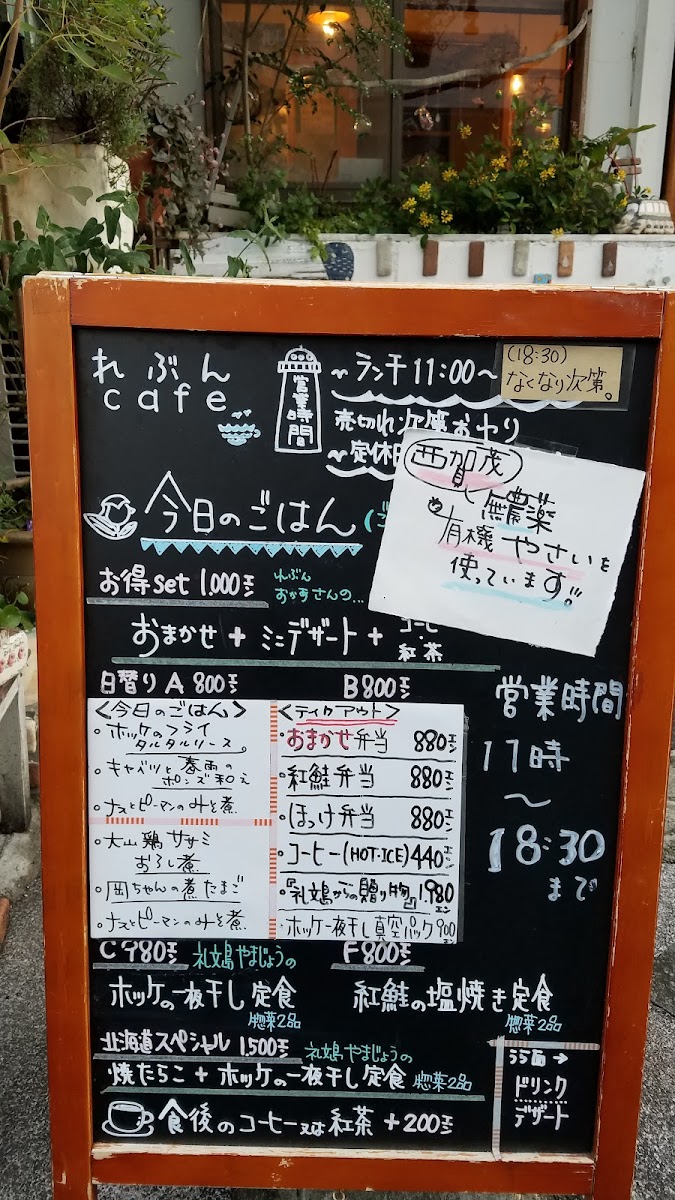 れぶん
cafe
営業時間
~ランチ11:00~
(18:30)
なくなり次第。
売切れ次第おわり
~定休日
西賀茂
無農薬
有機やさいを
使っています!!
今日のごはん
お得set 1.000エン
れぶん
おかずさんの...
おまかせ+ミニデザート+
コーヒー
紅茶
日替りA 800エン
B 800エン
<今日のごはん>
・ホッケのフライ
タルタルソース。
・キャベツと春雨の
ポンズ和え
・ナスとピーマンのみそ煮
・大山鶏ササミ
おろし煮
・岡ちゃんの煮たまご
・ナスとピーマンのみそ煮.
<テイクアウト>
・おまかせ弁当 880エン
・紅鮭弁当 880エン
・ほっけ弁当 880エン
・コーヒー(HOT・ICE)440エン
・『礼文島からの贈り物』1.980エン
・ホッケ一夜干し真空パック900エン
営業時間
17時
~
18:30
まで
C 980エン 礼文島やまじょうの
ホッケの一夜干し定食
惣菜2品
F 800エン
紅鮭の塩焼き定食
惣菜2品
北海道スペシャル 1.500エン 礼文島やまじょうの
焼たらこ+ホッケの一夜干し定食 惣菜2品
うら面→
ドリンク
デザート
食後のコーヒー又は紅茶+200エン